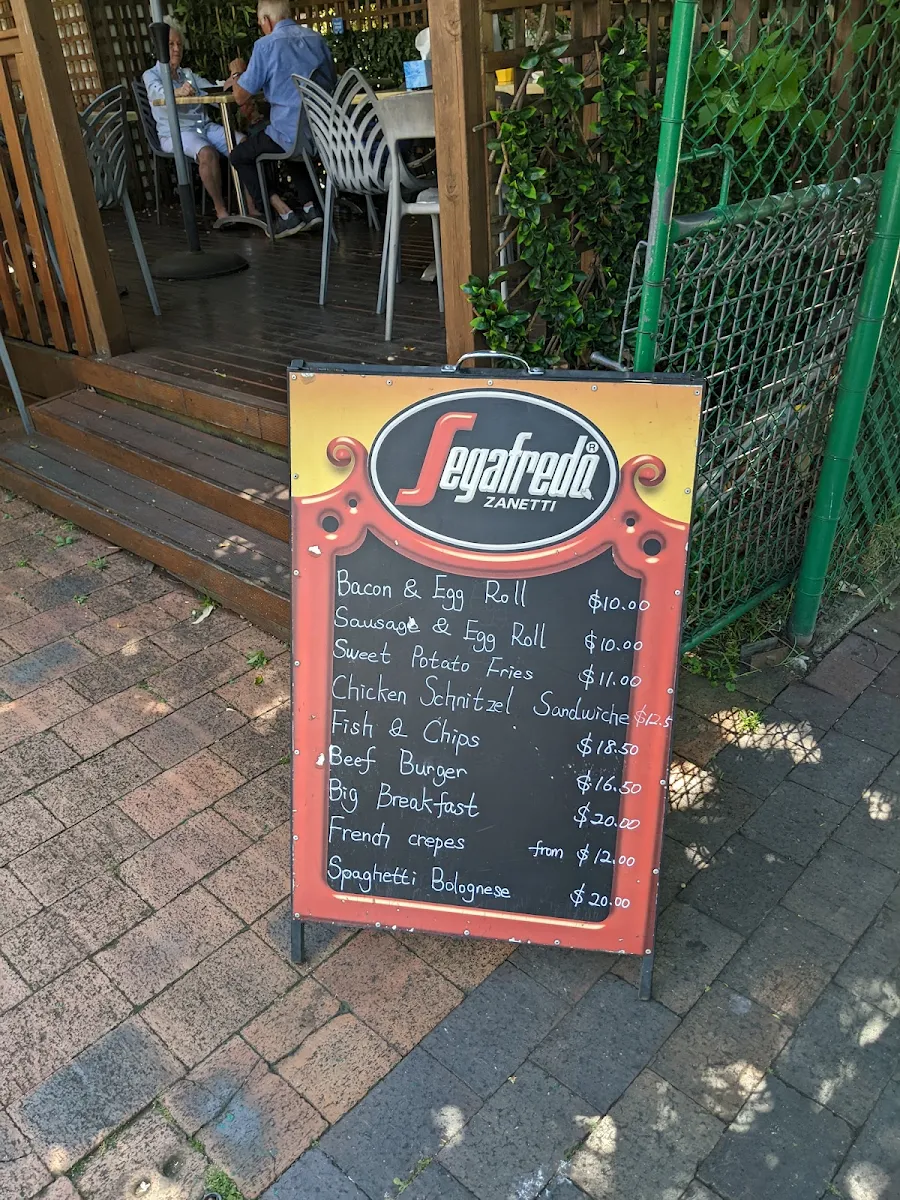 Segafredo®
ZANETTI
Bacon & Egg Roll $10.00
Sausage & Egg Roll $10.00
Sweet Potato Fries $11.00
Chicken Schnitzel Sandwiche $12.5
Fish & Chips $18.50
Beef Burger $16.50
Big Breakfast $20.00
French crepes from $12.00
Spaghetti Bolognese $20.00